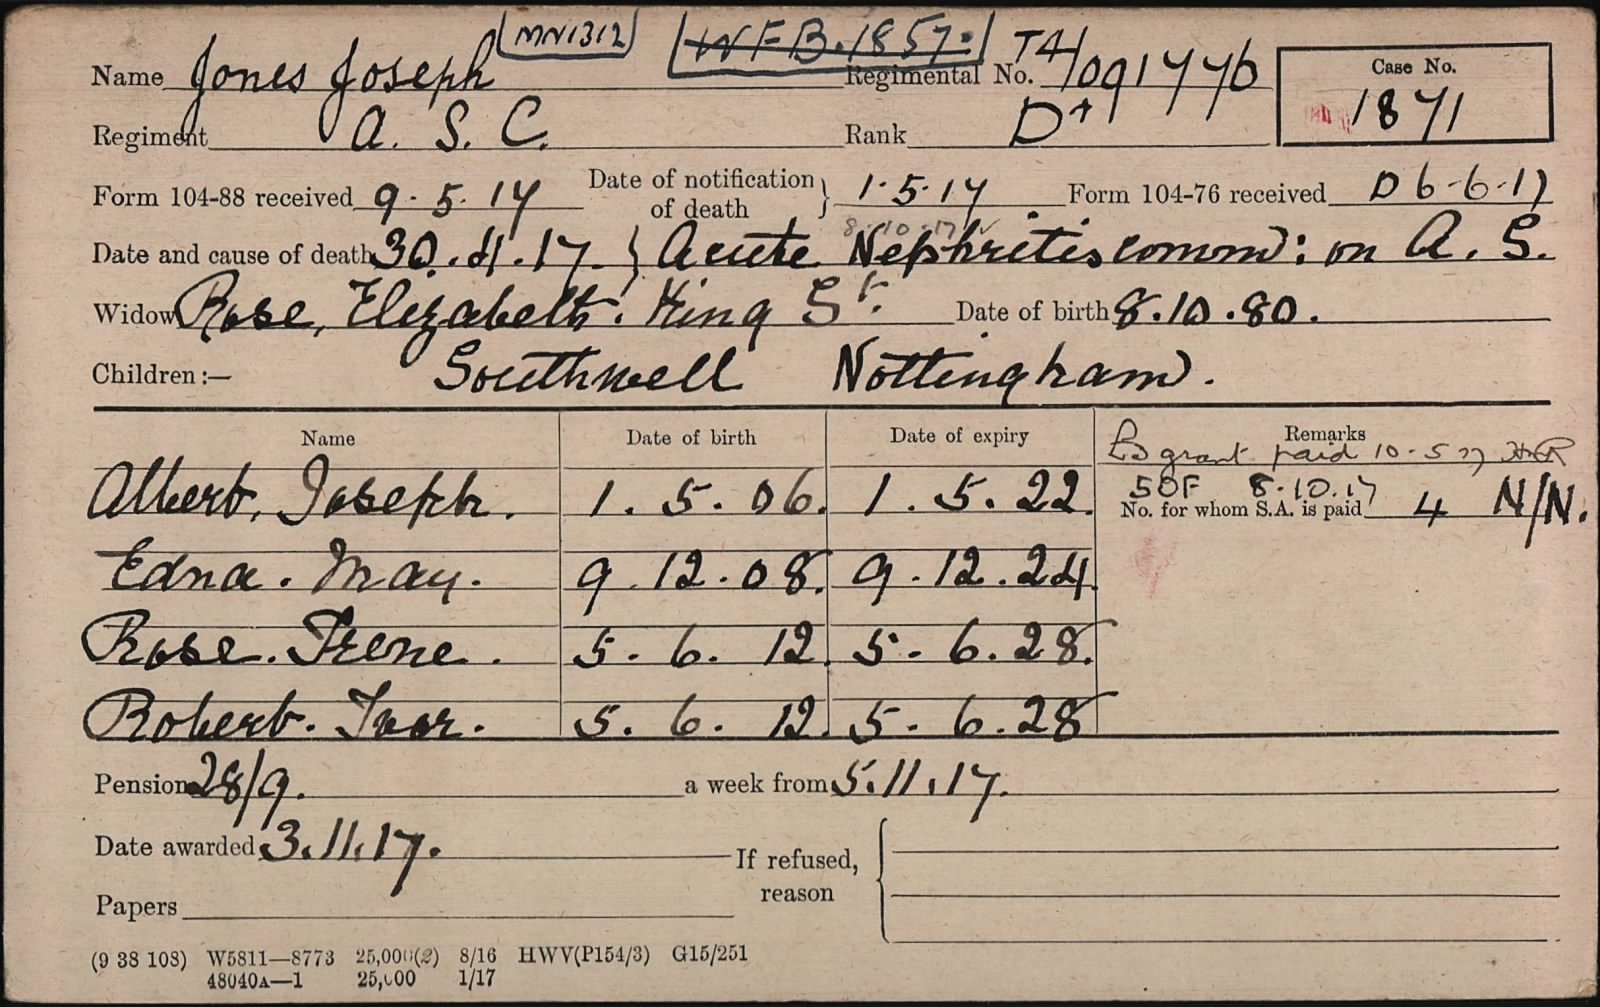 MN1312 WFB.1857.
Name Jones Joseph Regimental No. T4/091776 Case No.
Regiment A. S. C. Rank Dr 1871
Form 104-88 received 9.5.17 Date of notification of death } 1.5.17 Form 104-76 received D 6-6-17
8.10.17
Date and cause of death 30.4.17. } Acute Nephritis comm: on A. S.
Widow Rose, Elizabeth. King St. Date of birth 8.10.80.
Children:— Southwell Nottingham.
Name Date of birth Date of expiry Remarks
£3 grant paid 10-5-17
Albert, Joseph. 1. 5. 06. 1. 5. 22. SOF 8.10.17
No. for whom S.A. is paid 4 N/N.
Edna. May. 9. 12. 08. 9. 12. 24.
Rose. Irene. 5. 6. 12. 5. 6. 28.
Robert. Ivor. 5. 6. 12. 5. 6. 28
Pension 28/9. a week from 5.11.17.
Date awarded 3.11.17. If refused,
reason
Papers
(9 38 108) W5811—8773 25,000(2) 8/16 HWV(P154/3) G15/251
48040A—1 25,000 1/17